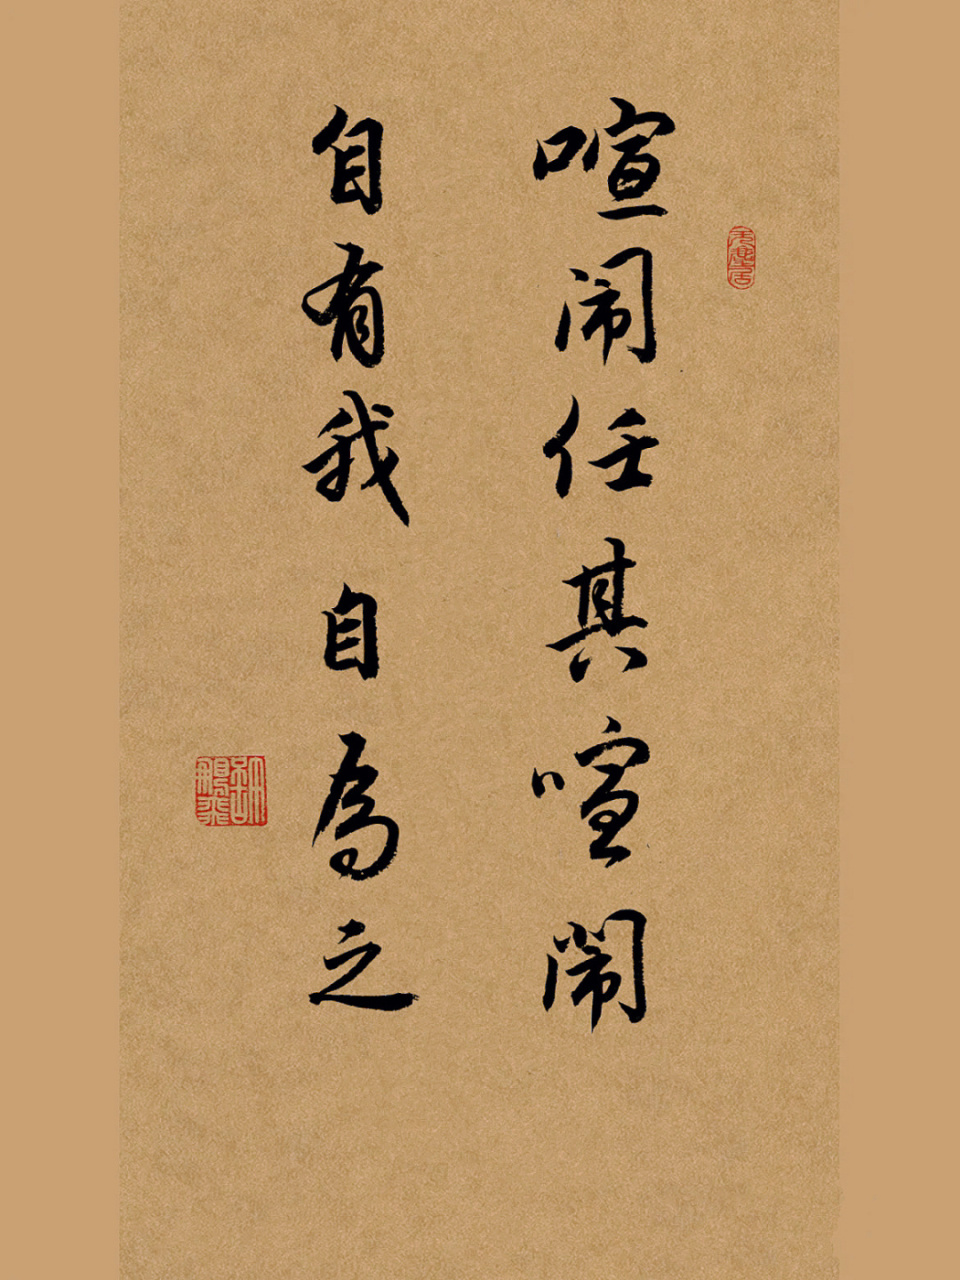 喧闹任其喧闹
自有我自為之